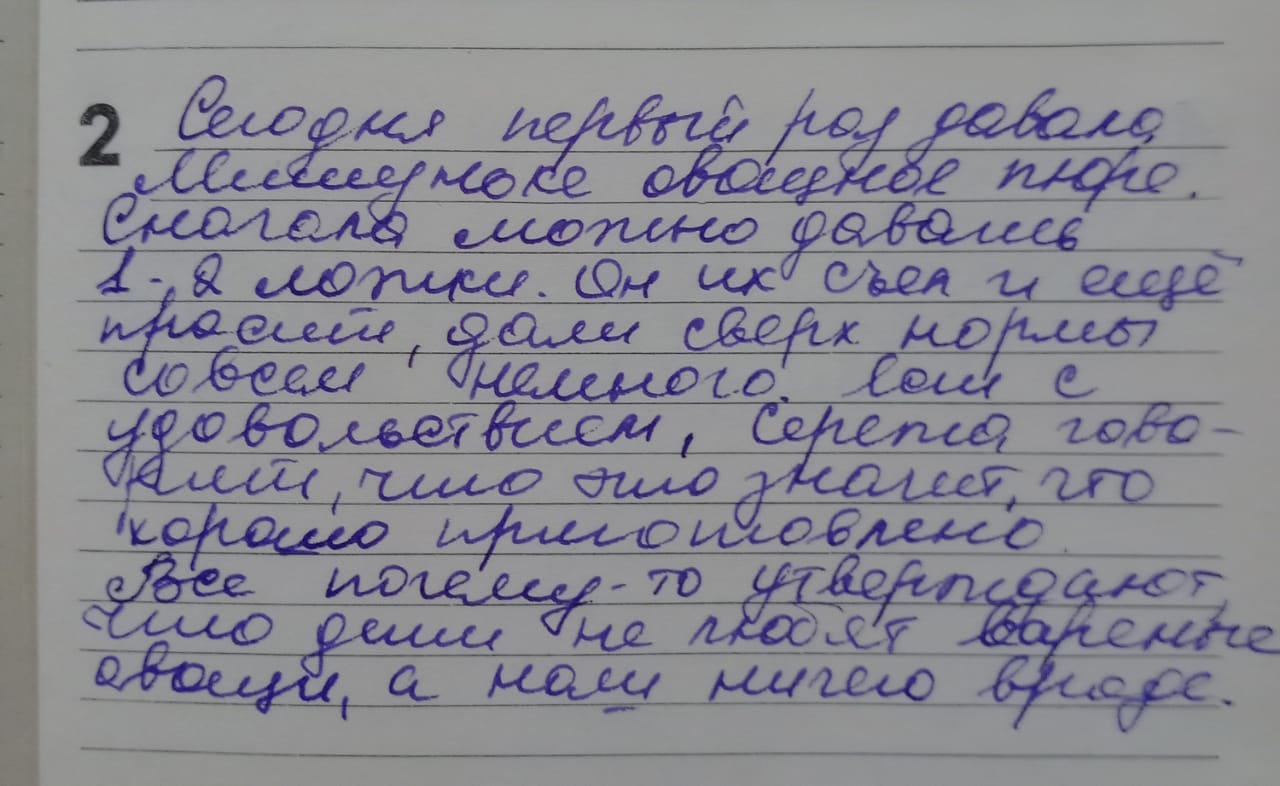 2 Сегодня первый раз давала
Мишуньке овощное пюре.
Сначала можно давать
1-2 ложки. Он их съел и ещё
просит, дали сверх нормы
совсем немного. Ест с
удовольствием, Сережа гово-
рит, что это значит, что
хорошо приготовлено
Все почему-то утверждают,
что дети не любят вареные
овощи, а наш ничего вроде.